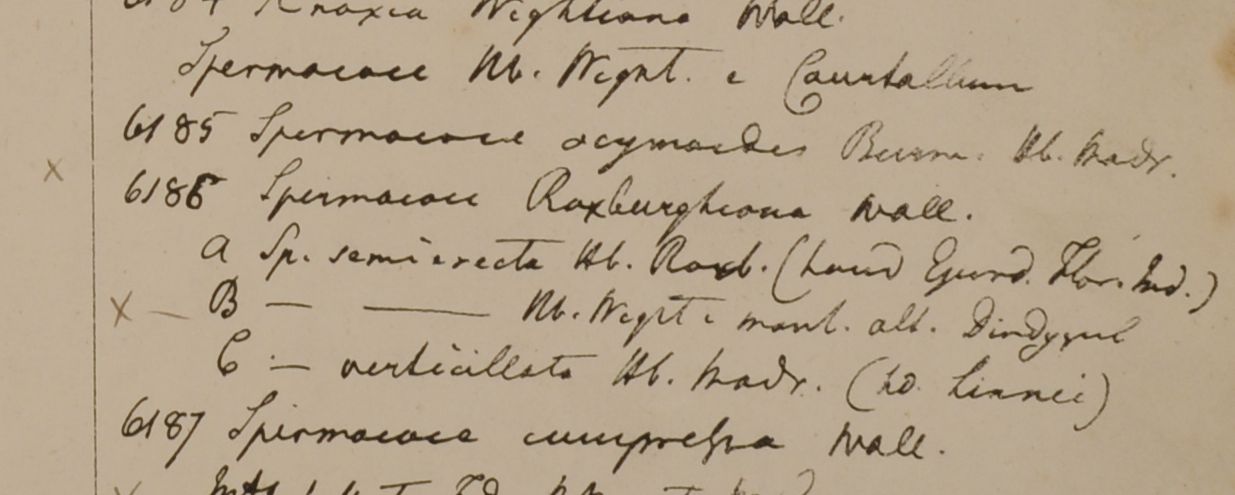 6184 Knoxia Wightiana Wall.
Spermacoce Hb. Wight. e Courtallum
6185 Spermacoce ocymoides Burm. Hb. Madr.
x 6186 Spermacoce Roxburghiana Wall.
A Sp. semierecta Hb. Roxb. (haud Ejusd. Flor. Ind.)
x — B — —— Hb. Wight e mont. alt. Dindygul
C — verticillata Hb. Madr. (hd. Linnei)
6187 Spermacoce compressa Wall.